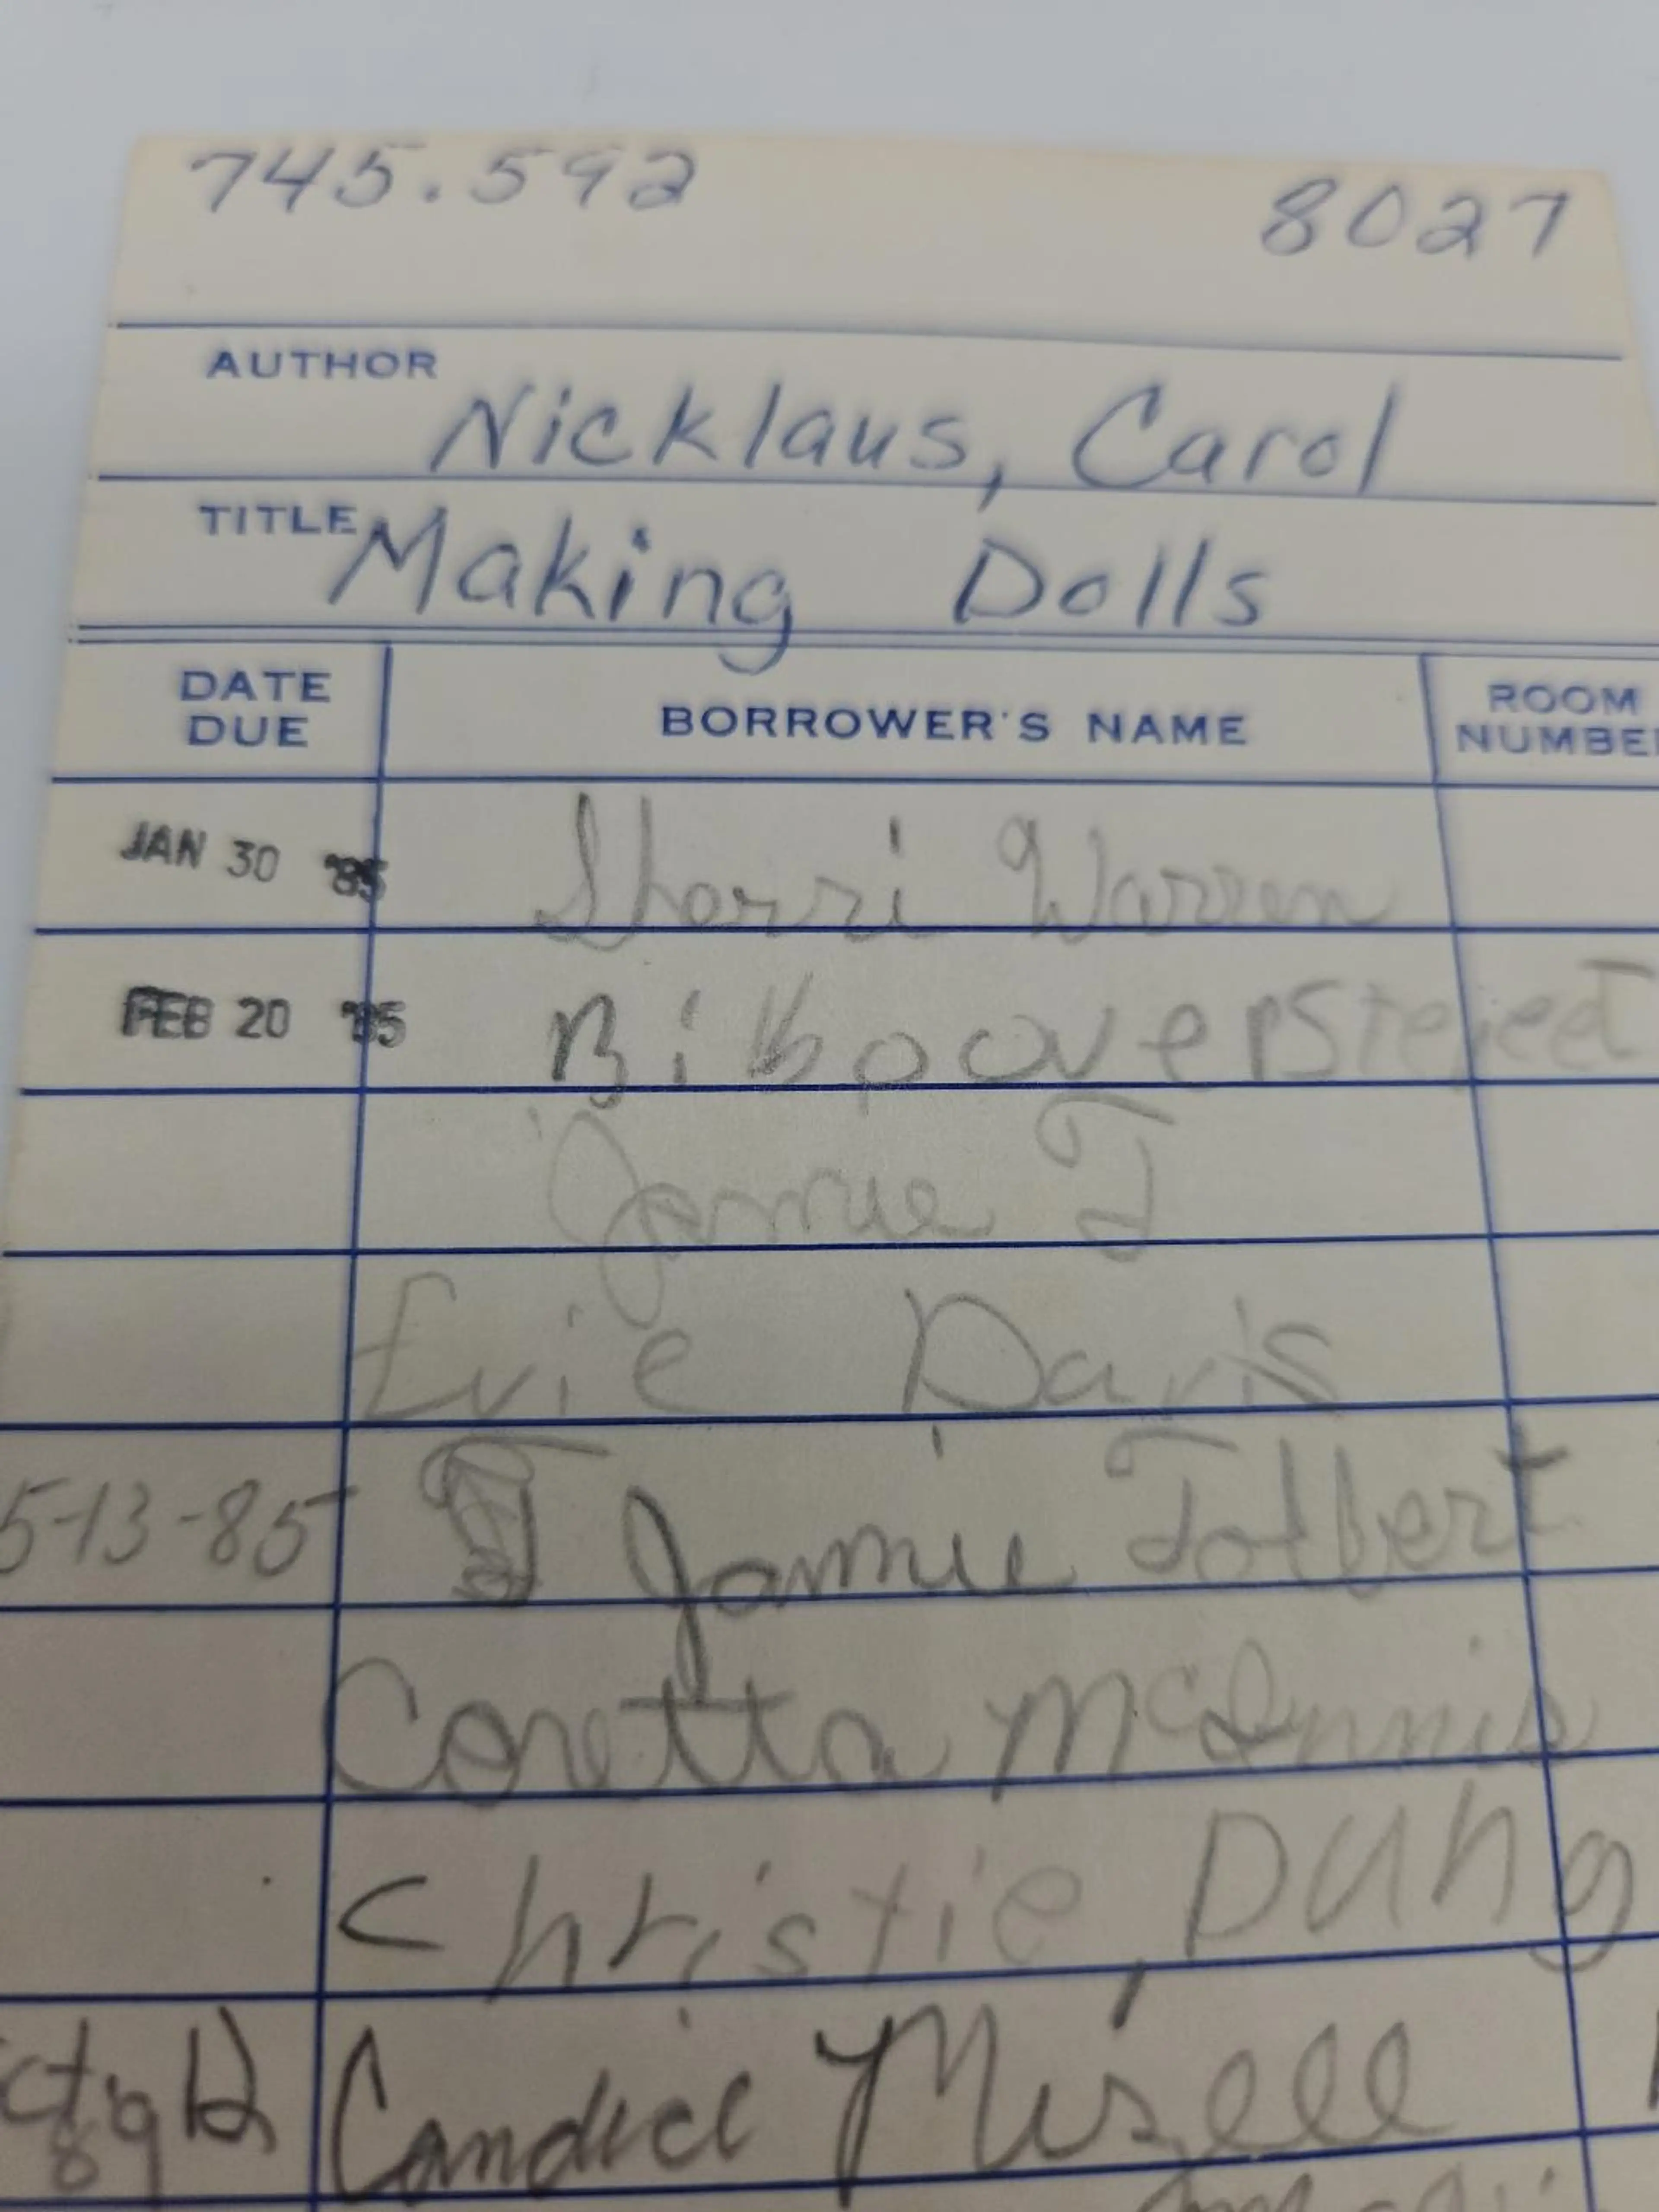 745.592 8027
AUTHOR Nicklaus, Carol
TITLE Making Dolls
DATE DUE BORROWER'S NAME ROOM NUMBE
JAN 30 '85 Sherri Warren
FEB 20 '85
Jamie T
Evie Davis
5-13-85 Jamie Tolbert
Coretta McInnis
Christie, Dung
Candice Mizell